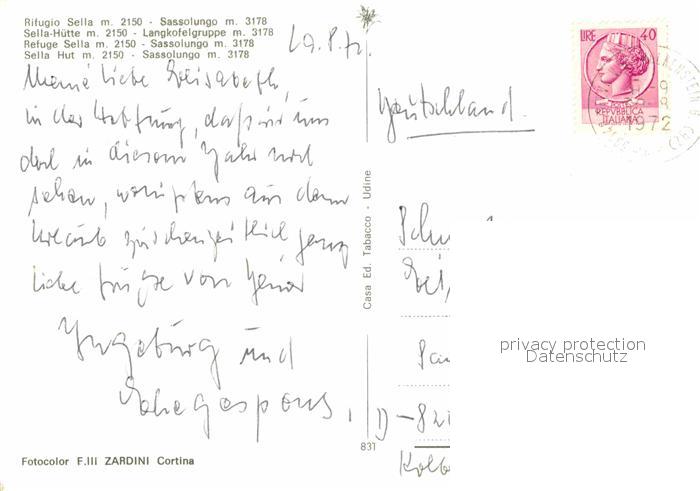 Rifugio Sella m. 2150 - Sassolungo m. 3178
Sella-Hütte m. 2150 - Langkofelgruppe m. 3178
Refuge Sella m. 2150 - Sassolungo m. 3178
Sella Hut m. 2150 - Sassolungo m. 3178
Meine liebe Elisabeth,
in der Hoffnung, daß wir uns
doch in diesem Jahr noch
sehen, wenigstens aus dem
Urlaub zwischenzeitlich ganz
liebe Grüße von Deiner
Ingeburg und
Deutschland
LIRE 40
REPVBBLICA
ITALIANA
1972
Casa Ed. Tabacco - Udine
831
D-82
Kolb
privacy protection
Datenschutz
Fotocolor F.lli ZARDINI Cortina